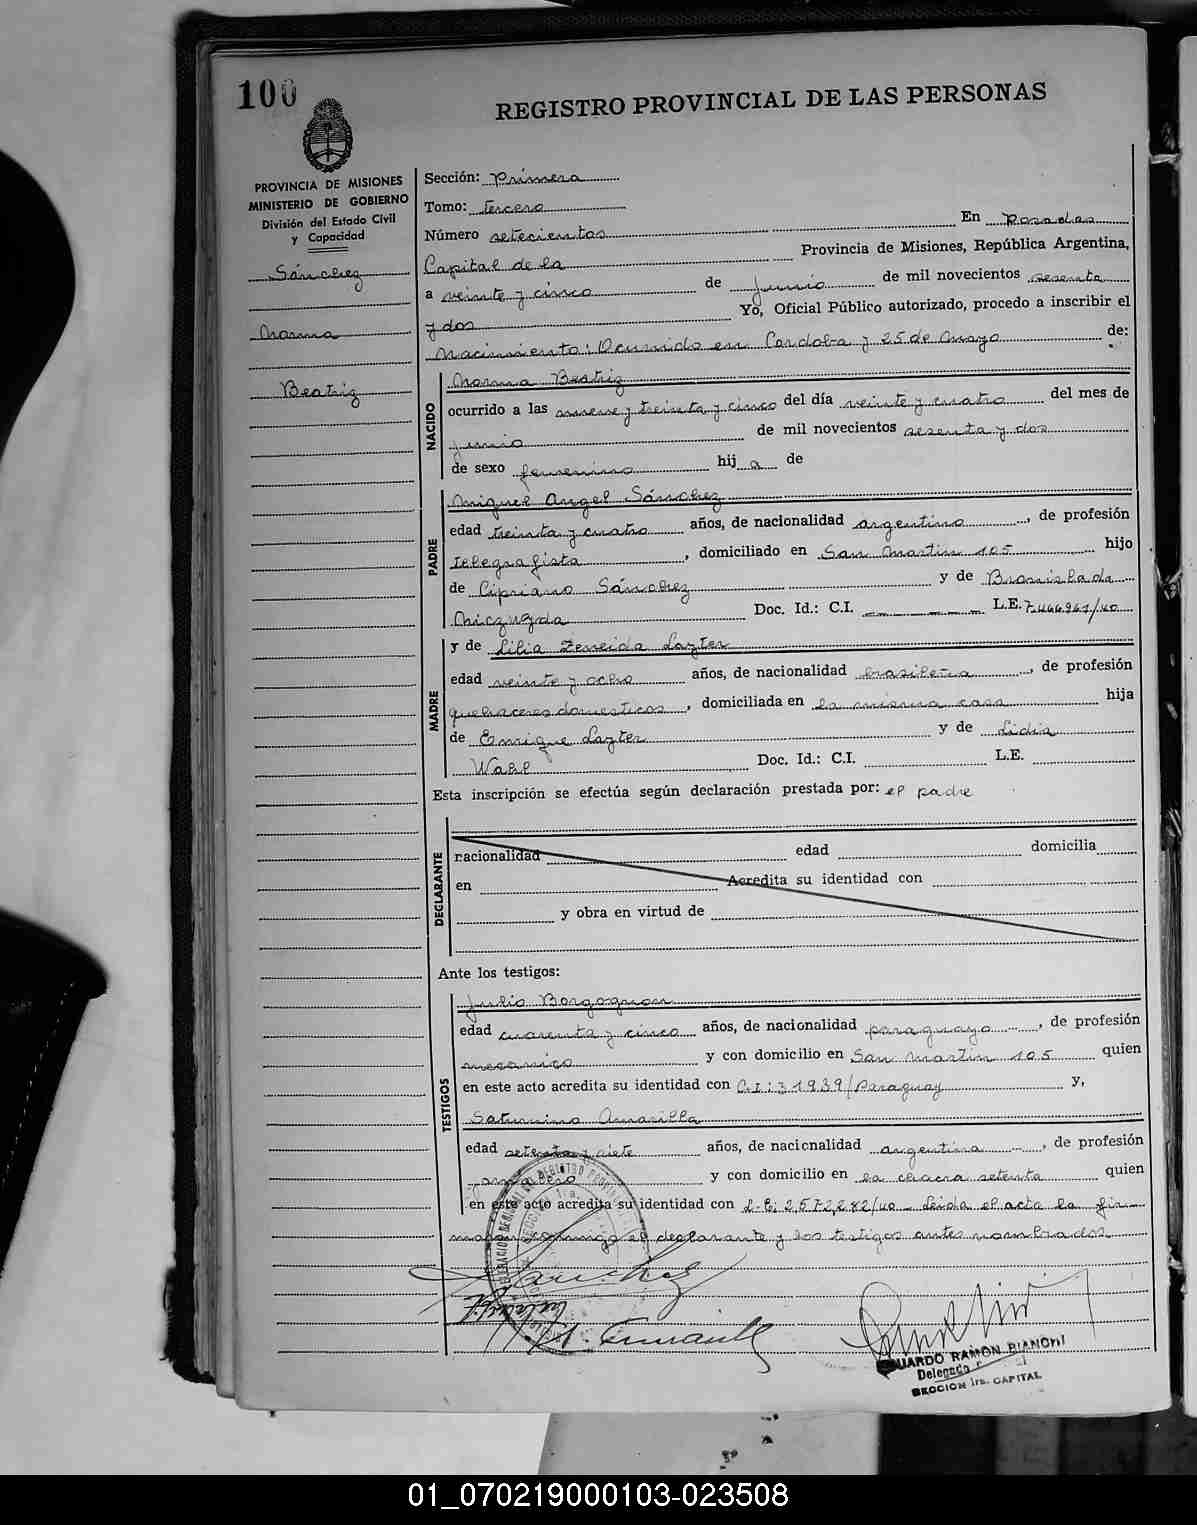 100
REGISTRO PROVINCIAL DE LAS PERSONAS
PROVINCIA DE MISIONES
MINISTERIO DE GOBIERNO
División del Estado Civil
y Capacidad
Sánchez
Norma
Beatriz
Sección: Primera
Tomo: tercero
Número setecientos En Posadas
Capital de la Provincia de Misiones, República Argentina,
a veinte y cinco de Junio de mil novecientos sesenta
y dos Yo, Oficial Público autorizado, procedo a inscribir el
Nacimiento: Ocurrido en Cordoba y 25 de Mayo de:
NACIDO
Norma Beatriz
ocurrido a las nueve y treinta y cinco del día veinte y cuatro del mes de
Junio de mil novecientos sesenta y dos
de sexo femenino hij a de
PADRE
Miguel Angel Sánchez
edad treinta y cuatro años, de nacionalidad argentino, de profesión
telegrafista, domiciliado en San Martin 105 hijo
de Cipriano Sánchez y de Bronislada
Doc. Id.: C.I. L.E. 7.466.961/40
MADRE
y de Lilia Zeneida Lazter
edad veinte y ocho años, de nacionalidad brasileña, de profesión
quehaceres domesticos, domiciliada en la misma casa hija
de Enrique Lazter y de Lidia
Wahl Doc. Id.: C.I. L.E.
Esta inscripción se efectúa según declaración prestada por: el padre
DECLARANTE
nacionalidad edad domicilia
en Acredita su identidad con
y obra en virtud de
Ante los testigos:
TESTIGOS
Julio Borgognon
edad cuarenta y cinco años, de nacionalidad paraguayo, de profesión
mecanico y con domicilio en San Martin 105 quien
en este acto acredita su identidad con C.I: 31939/Paraguay y,
Saturnino Amarilla
edad setenta y siete años, de nacionalidad argentina, de profesión
y con domicilio en la chacra setenta quien
en este acto acredita su identidad con L.E: 2.572.282/40 Leida el acta la fir-
man conmigo el declarante y los testigos antes nombrados
EDUARDO RAMON BIANCHI
Delegado
SECCION 1ra. CAPITAL
01_070219000103-023508